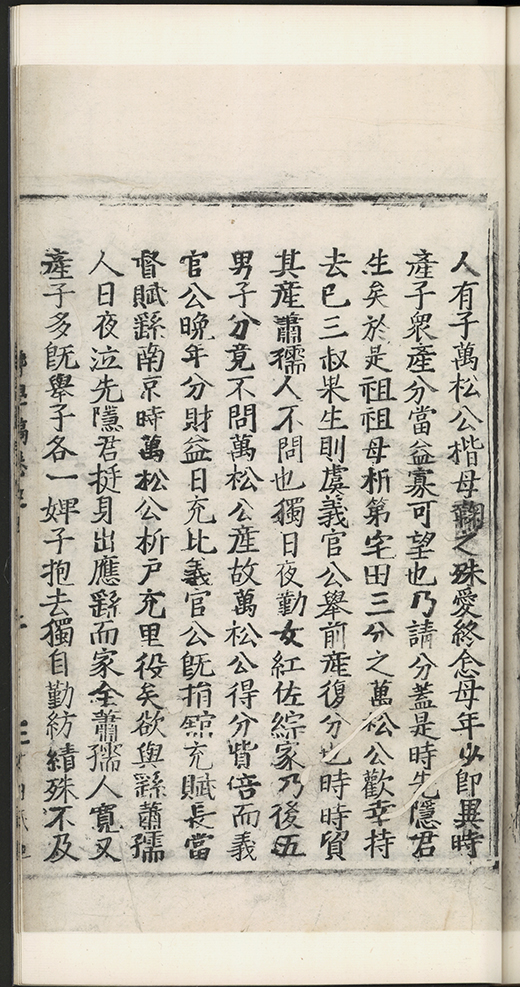 人有子萬松公楷母鞠之殊愛終念母年少即異時
產子衆產分當益寡可望也乃請分蓋是時先隱君
生矣於是祖祖母析第宅田三分之萬松公歡幸持
去已三叔果生則虞義官公舉前產復分也時時貿
其產蕭孺人不問也獨日夜勤女紅佐綜家乃後五
男子分竟不問萬松公產故萬松公得分皆倍而義
官公晚年分財益日充比義官公旣捐舘充賦長當
督賦繇南京時萬松公析戶充里役矣欲與繇蕭孺
人日夜泣先隱君挺身出應繇而家全蕭孺人寬又
產子多旣舉子各一婢子抱去獨自勤紡績殊不及